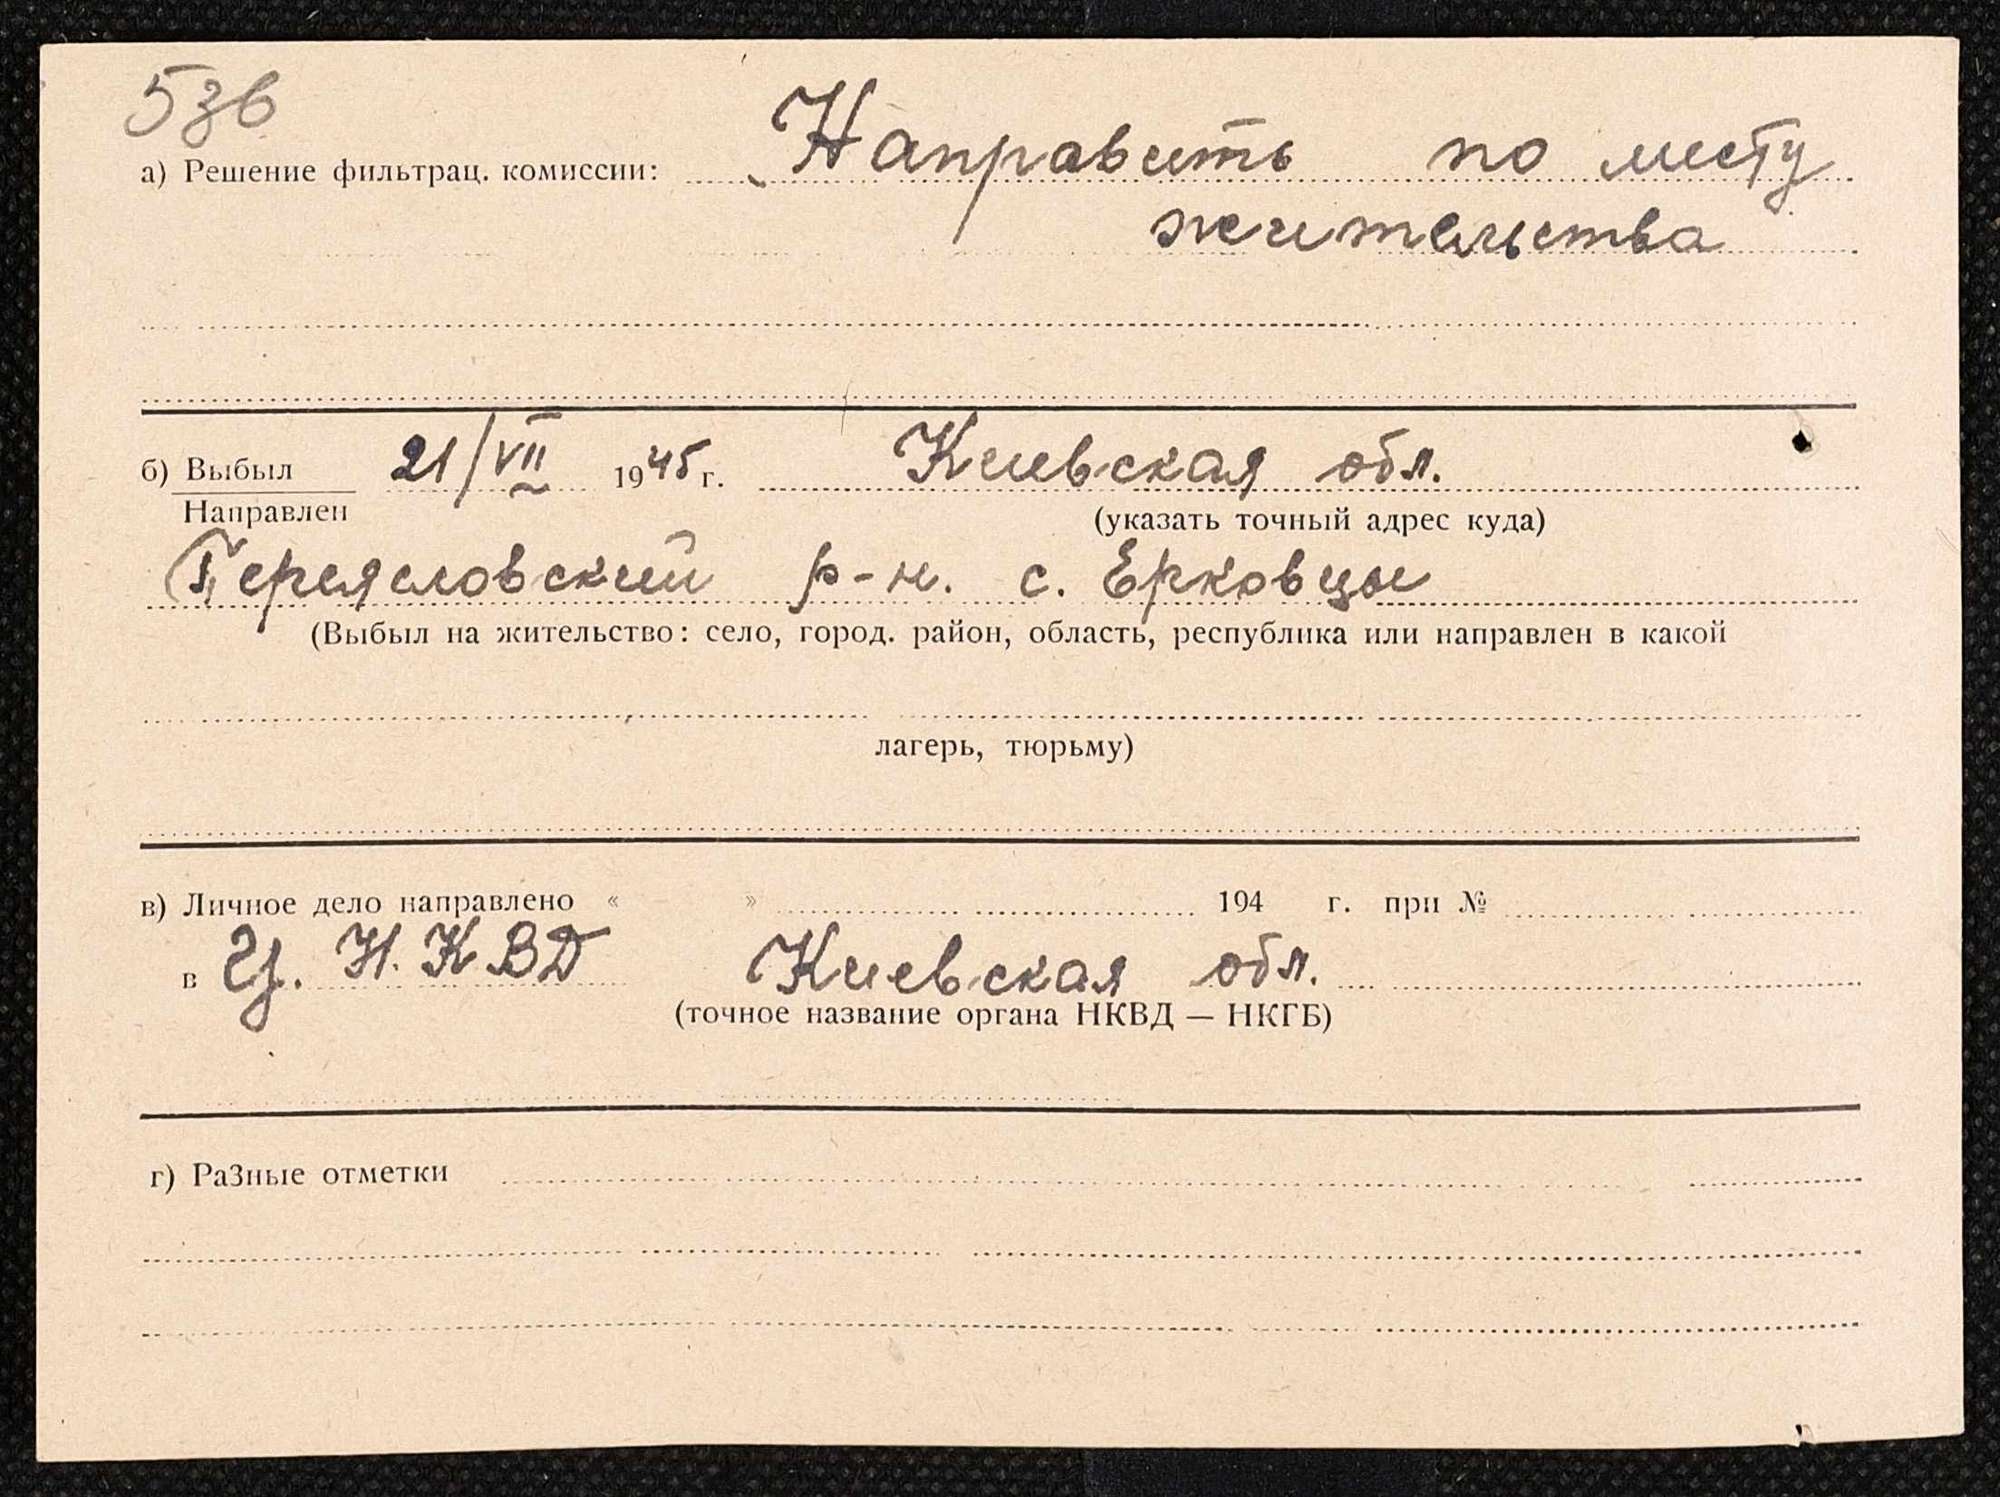 536
а) Решение фильтрац. комиссии: Направить по месту
жительства
б) Выбыл 21/VII 1945 г. Киевская обл.
Направлен (указать точный адрес куда)
Переясловский р-н. с. Ерковцы
(Выбыл на жительство: село, город. район, область, республика или направлен в какой
лагерь, тюрьму)
в) Личное дело направлено « » 194 г. при №
в Н.КВД Киевская обл.
(точное название органа НКВД — НКГБ)
г) РаЗные отметки